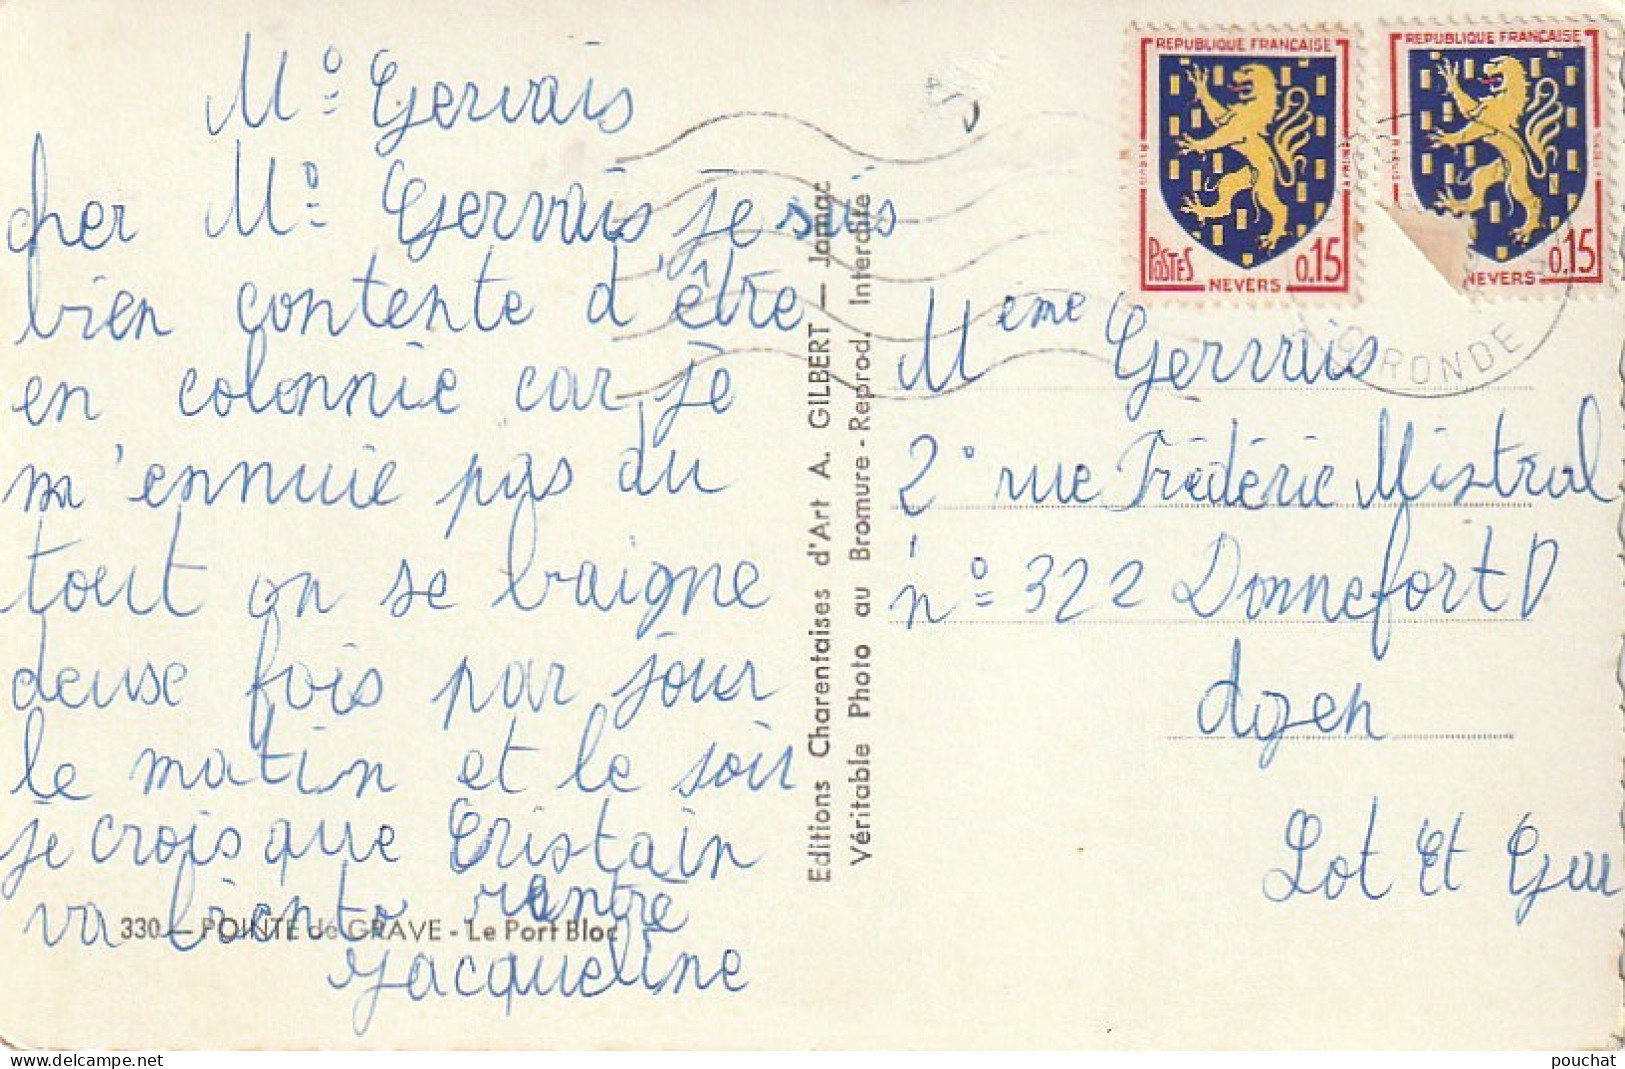 Mº Gervais
cher Mº Gervais, je suis
bien contente d'être
en colonnie car je
m'ennuie pas du
tout on se baigne
deuse fois par jour
le matin et le soir
je crois que Cristain
va biento rentre
Jacqueline
330 — POINTE de GRAVE - Le Port Bloc
Editions Charentaises d'Art A. GILBERT — Jarnac
Véritable Photo au Bromure - Reprod. Interdite
REPUBLIQUE FRANÇAISE
POSTES
NEVERS
0,15
REPUBLIQUE FRANÇAISE
NEVERS
0,15
GIRONDE
Meme Gervais
2° rue Frédéric Mistral
nº 322 Donnefort D
Agen
Lot Et Gar
delcampe.net
pouchat